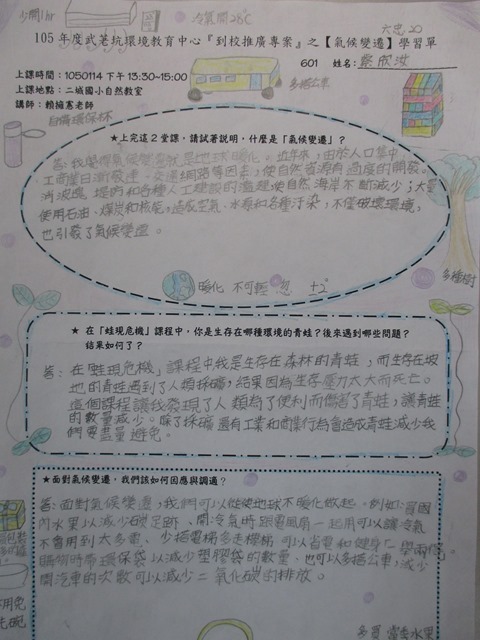 少開1hr
冷氣開28℃
105年度武荖坑環境教育中心『到校推廣專案』之【氣候變遷】學習單
六忠20
601 姓名:
上課時間:1050114下午13:30~15:00
上課地點:二城國小自然教室
講師:賴擁憲老師
多搭公車
自備環保杯
★上完這2堂課,請試著說明,什麼是「氣候變遷」?
答:我覺得氣候變遷就是地球暖化。近年來,由於人口集中、
工商業日漸發達、交通網路等因素,使自然資源有過度的開發。
消波塊、堤防和各種人工建設的濫建使自然海岸不斷減少;大量
使用石油、煤炭和核能,造成空氣、水源和各種汙染,不僅破壞環境,
也引發了氣候變遷。
暖化 不可輕忽 +2°
多種樹
★在「蛙現危機」課程中,你是生存在哪種環境的青蛙?後來遇到哪些問題?
結果如何了?
答:在「蛙現危機」課程中我是生存在森林的青蛙,而生存在坡
地的青蛙遇到了人類採礦,結果因為生存壓力太大而死亡。
這個課程讓我發現了人類為了便利而傷害了青蛙,讓青蛙
的數量減少。除了採礦還有工業和商業行為會造成青蛙減少我
們要盡量避免。
★面對氣候變遷,我們該如何因應與調適?
答:面對氣候變遷,我們可以從從地球不暖化做起。例如:買國
內水果以減少碳足跡、開冷氣時跟電風扇一起用可以讓冷氣
不會用到太多電、少搭電梯多走樓梯可以省電和健身一舉兩得、
購物時帶環保袋以減少塑膠袋的數量、也可以多搭公車,減少
開汽車的次數可以減少二氧化碳的排放。
多買當季水果